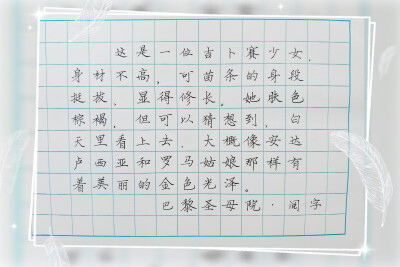 这是一位吉卜赛少女,
身材不高,可苗条的身段
挺拔,显得修长。她肤色
棕褐,但可以猜想到,白
天里看上去,大概像安达
卢西亚和罗马姑娘那样有
着美丽的金色光泽。
巴黎圣母院·阅字